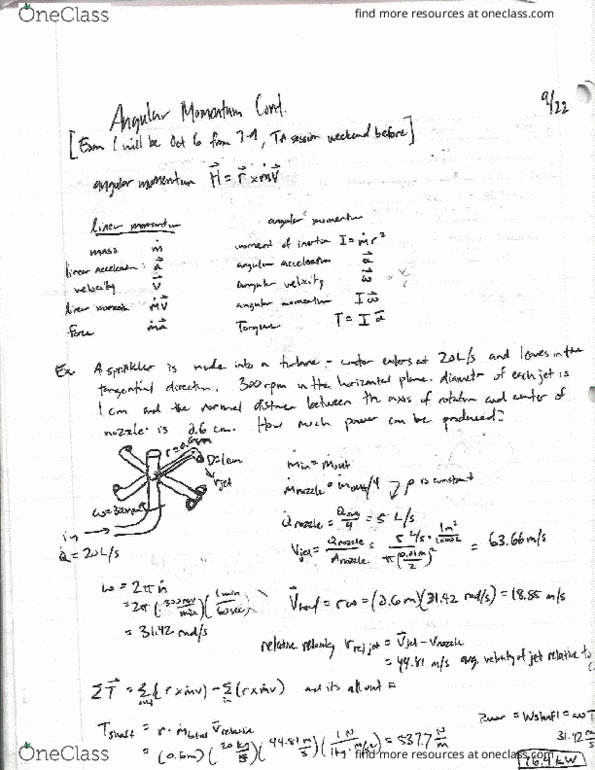 OneClass
find more resources at oneclass.com
Angular Momentum Cont.
9/22
[Exam 1 will be Oct 6 from 7-9, TA session weekend before]
angular momentum H⃗ = r⃗ × ṁV⃗
linear momentum
angular momentum
mass ṁ
moment of inertia I = ṁr²
linear acceleration a⃗
angular acceleration α⃗
velocity V⃗
angular velocity ω⃗
linear momentum ṁV⃗
angular momentum Iω⃗
Force ṁa⃗
Torque T⃗ = Iα⃗
Ex. A sprinkler is made into a turbine - water enters at 20 L/s and leaves in the
tangential direction. 300 rpm in the horizontal plane. diameter of each jet is
1 cm and the normal distance between the axis of rotation and center of
nozzle is 0.6 cm. How much power can be produced?
r = 0.6m
D = 1cm
Vjet
ω = 300rpm
in
Q̇ = 20 L/s
ṁin = ṁout
ṁnozzle = ṁout/4 ρ is constant
Q̇nozzle = /4 = 5 L/s
Vjet = Q̇nozzle/Anozzle = 5 L/s · 1m³/1000L / π(0.01m/2)² = 63.66 m/s
ω = 2πṅ
= 2π(300rev/min)(1min/60sec)
= 31.42 rad/s
= rω = (0.6m)(31.42 rad/s) = 18.85 m/s
relative velocity Vrel jet = V⃗jet - Vnozzle
= 44.81 m/s avg. velocity of jet relative to
ΣT⃗ = Σout(r × ṁv) - Σin(r × ṁv) and its all out =
Tshaft = r · ṁtotal V⃗relative
= (0.6m)(20 kg/s)(44.81 m/s)(1N/1kg·m/s²) = 537.7 N/m
Power = Wshaft = ωT
31.42
16.9 kW
OneClass
find more resources at oneclass.com